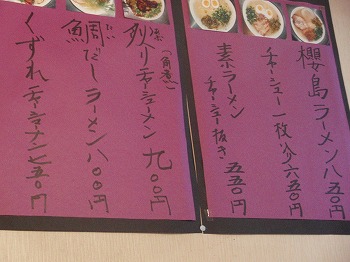 櫻島ラーメン八五〇円
チャーシュー一枚入り六五〇円
素ラーメン
チャーシュー抜き 五五〇円
(角煮)
チャーシューメン 九〇〇円
鯛だしラーメン 八〇〇円
たい
くずれチャーシューメン七五〇円